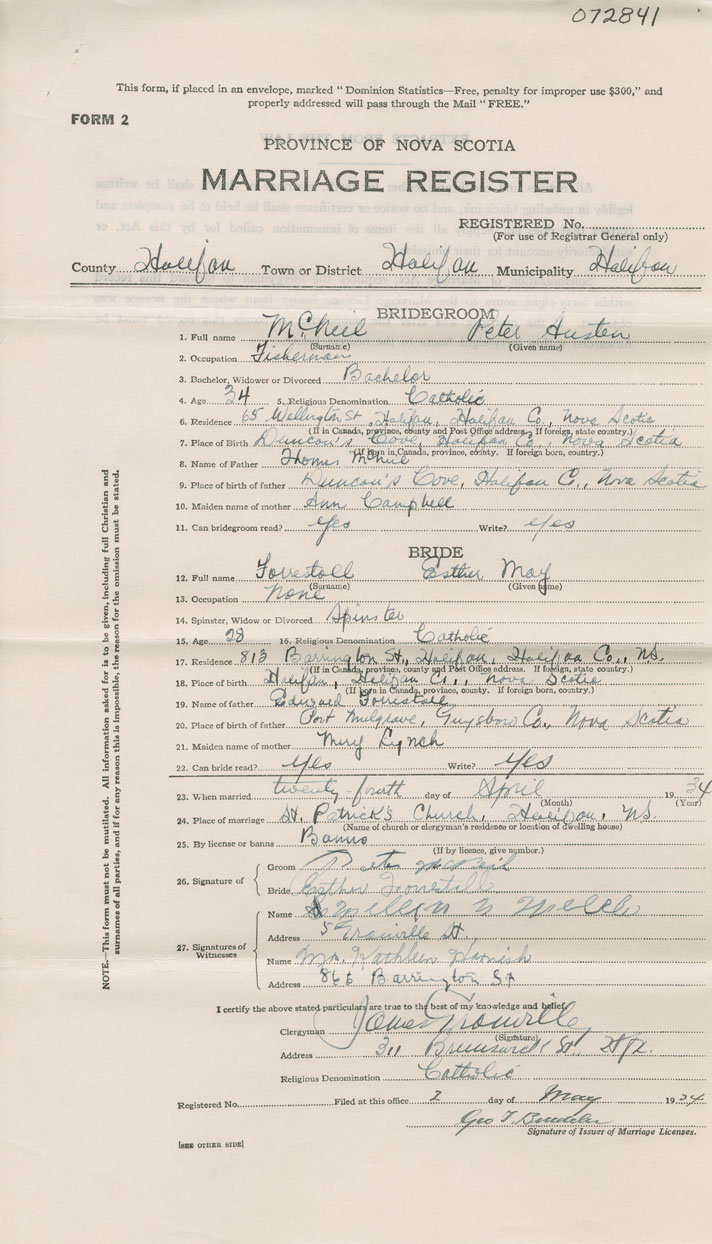 072841
This form, if placed in an envelope, marked "Dominion Statistics—Free, penalty for improper use $300," and
properly addressed will pass through the Mail "FREE."
FORM 2
PROVINCE OF NOVA SCOTIA
MARRIAGE REGISTER
REGISTERED No.
(For use of Registrar General only)
County Halifax Town or District Halifax Municipality Halifax
BRIDEGROOM
1. Full name McNeil Peter Austen
(Surname) (Given name)
2. Occupation Fisherman
3. Bachelor, Widower or Divorced Bachelor
4. Age 34 5. Religious Denomination Catholic
6. Residence 65 Wellington St, Halifax, Halifax Co., Nova Scotia
(If in Canada, province, county and Post Office address. If foreign, state country.)
7. Place of Birth Duncan's Cove, Halifax Co., Nova Scotia
(If born in Canada, province, county. If foreign born, country.)
8. Name of Father Thomas McNeil
9. Place of birth of father Duncan's Cove, Halifax Co., Nova Scotia
10. Maiden name of mother Ann Campbell
11. Can bridegroom read? Yes Write? Yes
BRIDE
12. Full name Forrestall Esther May
(Surname) (Given name)
13. Occupation None
14. Spinster, Widow or Divorced Spinster
15. Age 28 16. Religious Denomination Catholic
17. Residence 813 Barrington St., Halifax, Halifax Co., N.S.
(If in Canada, province, county and Post Office address. If foreign, state country.)
18. Place of birth Halifax, Halifax Co., Nova Scotia
(If born in Canada, province, county. If foreign born, country.)
19. Name of father Edward Forrestall
20. Place of birth of father Port Mulgrave, Guysboro Co., Nova Scotia
21. Maiden name of mother Mary Lynch
22. Can bride read? Yes Write? Yes
23. When married twenty-fourth day of April 1934
(Month) (Year)
24. Place of marriage St. Patrick's Church, Halifax, N.S.
(Name of church or clergyman's residence or location of dwelling house)
25. By license or banns Banns
(If by licence, give number.)
26. Signature of
Groom Peter McNeil
Bride Esther Forrestall
27. Signatures of Witnesses
Name
Address Granville St,
Name Kathleen
Address 866 Barrington St
I certify the above stated particulars are true to the best of my knowledge and belief.
Clergyman James Granville
(Signature)
Address 311 Brunswick St., Hfx.
Religious Denomination Catholic
Registered No. Filed at this office 2 day of May 1934
Geo T.
Signature of Issuer of Marriage Licenses.
[SEE OTHER SIDE]
NOTE.—This form must not be mutilated. All information asked for is to be given, including full Christian and
surnames of all parties, and if for any reason this is impossible, the reason for the omission must be stated.